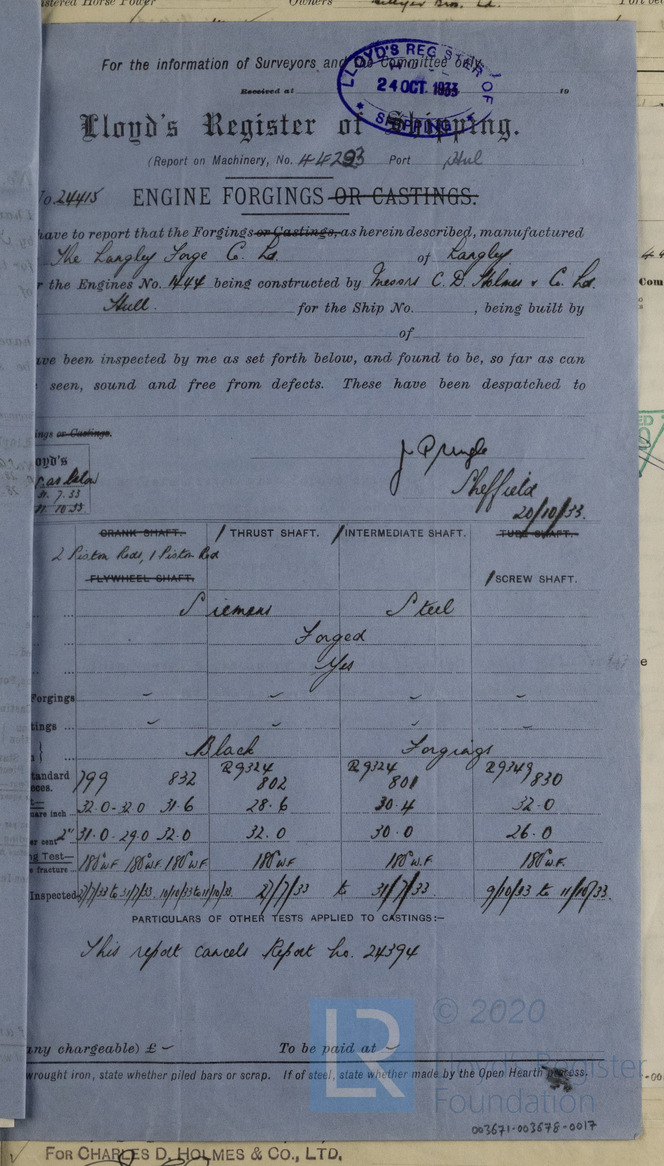 istered Horse Power Owners
For the information of Surveyors and the Committee only.
Received at 19
LLOYD'S REGISTER OF SHIPPING
24 OCT. 1933
Lloyd's Register of Shipping.
(Report on Machinery, No. 44293 Port Hul
No. 24415 ENGINE FORGINGS OR CASTINGS.
have to report that the Forgings or Castings, as herein described, manufactured
The Langley Forge C. Ld. of Langley
r the Engines No. 1444 being constructed by Messrs C. D. Holmes & Co. Ld.
Hull. for the Ship No. , being built by
of
ave been inspected by me as set forth below, and found to be, so far as can
seen, sound and free from defects. These have been despatched to
ings or Castings.
J Pringle
oyd's
as below
Sheffield
7.33
10.33
20/10/33.
CRANK SHAFT. / THRUST SHAFT. / INTERMEDIATE SHAFT. TUBE SHAFT.
2 Piston Rods, 1 Piston Rod
FLYWHEEL SHAFT. / SCREW SHAFT.
Siemens Steel
Forged
Yes
Forgings
tings ...
Black Forgings
tandard 799 832 R9324 802 R9324 801 R9349 830
eces.
32.0-32.0 31.6 28.6 30.4 32.0
uare inch
er cent 2" 31.0-29.0 32.0 32.0 30.0 26.0
g Test— 180° W.F 180° W.F 180° W.F. 180° W.F 180° W.F 180° W.F.
e fracture
Inspected 27/7/33 to 31/7/33. 10/10/33 to 11/10/33. 27/7/33 to 31/7/33. 9/10/33 to 11/10/33.
PARTICULARS OF OTHER TESTS APPLIED TO CASTINGS:—
This report cancels Report No. 24394
© 2020
LR
Lloyd's Register
Foundation
any chargeable) £ – To be paid at –
wrought iron, state whether piled bars or scrap. If of steel, state whether made by the Open Hearth process.
003671-003678-0017
FOR CHARLES D. HOLMES & CO., LTD.